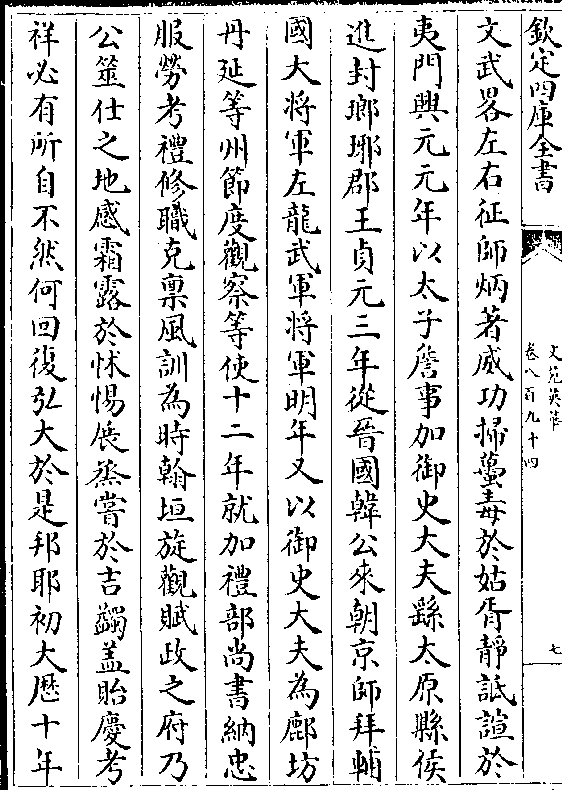 欽定四庫全書
文苑英華
卷八百九十四
七
文武畧左右征師炳著威功掃蠆毒於姑胥靜詆諠於
夷門興元元年以太子詹事加御史大夫縣太原縣侯
進封瑯琊郡王貞元三年從晉國韓公來朝京師拜輔
國大將軍左龍武軍將軍明年又以御史大夫為鄜坊
丹延等州節度觀察等使十二年就加禮部尚書納忠
服勞考禮修職克稟風訓為時翰垣旋觀賦政之府乃
公筮仕之地感霜露於怵惕展烝嘗於吉蠲盖貽慶考
祥必有所自不然何回復弘大於是邦耶初大厯十年